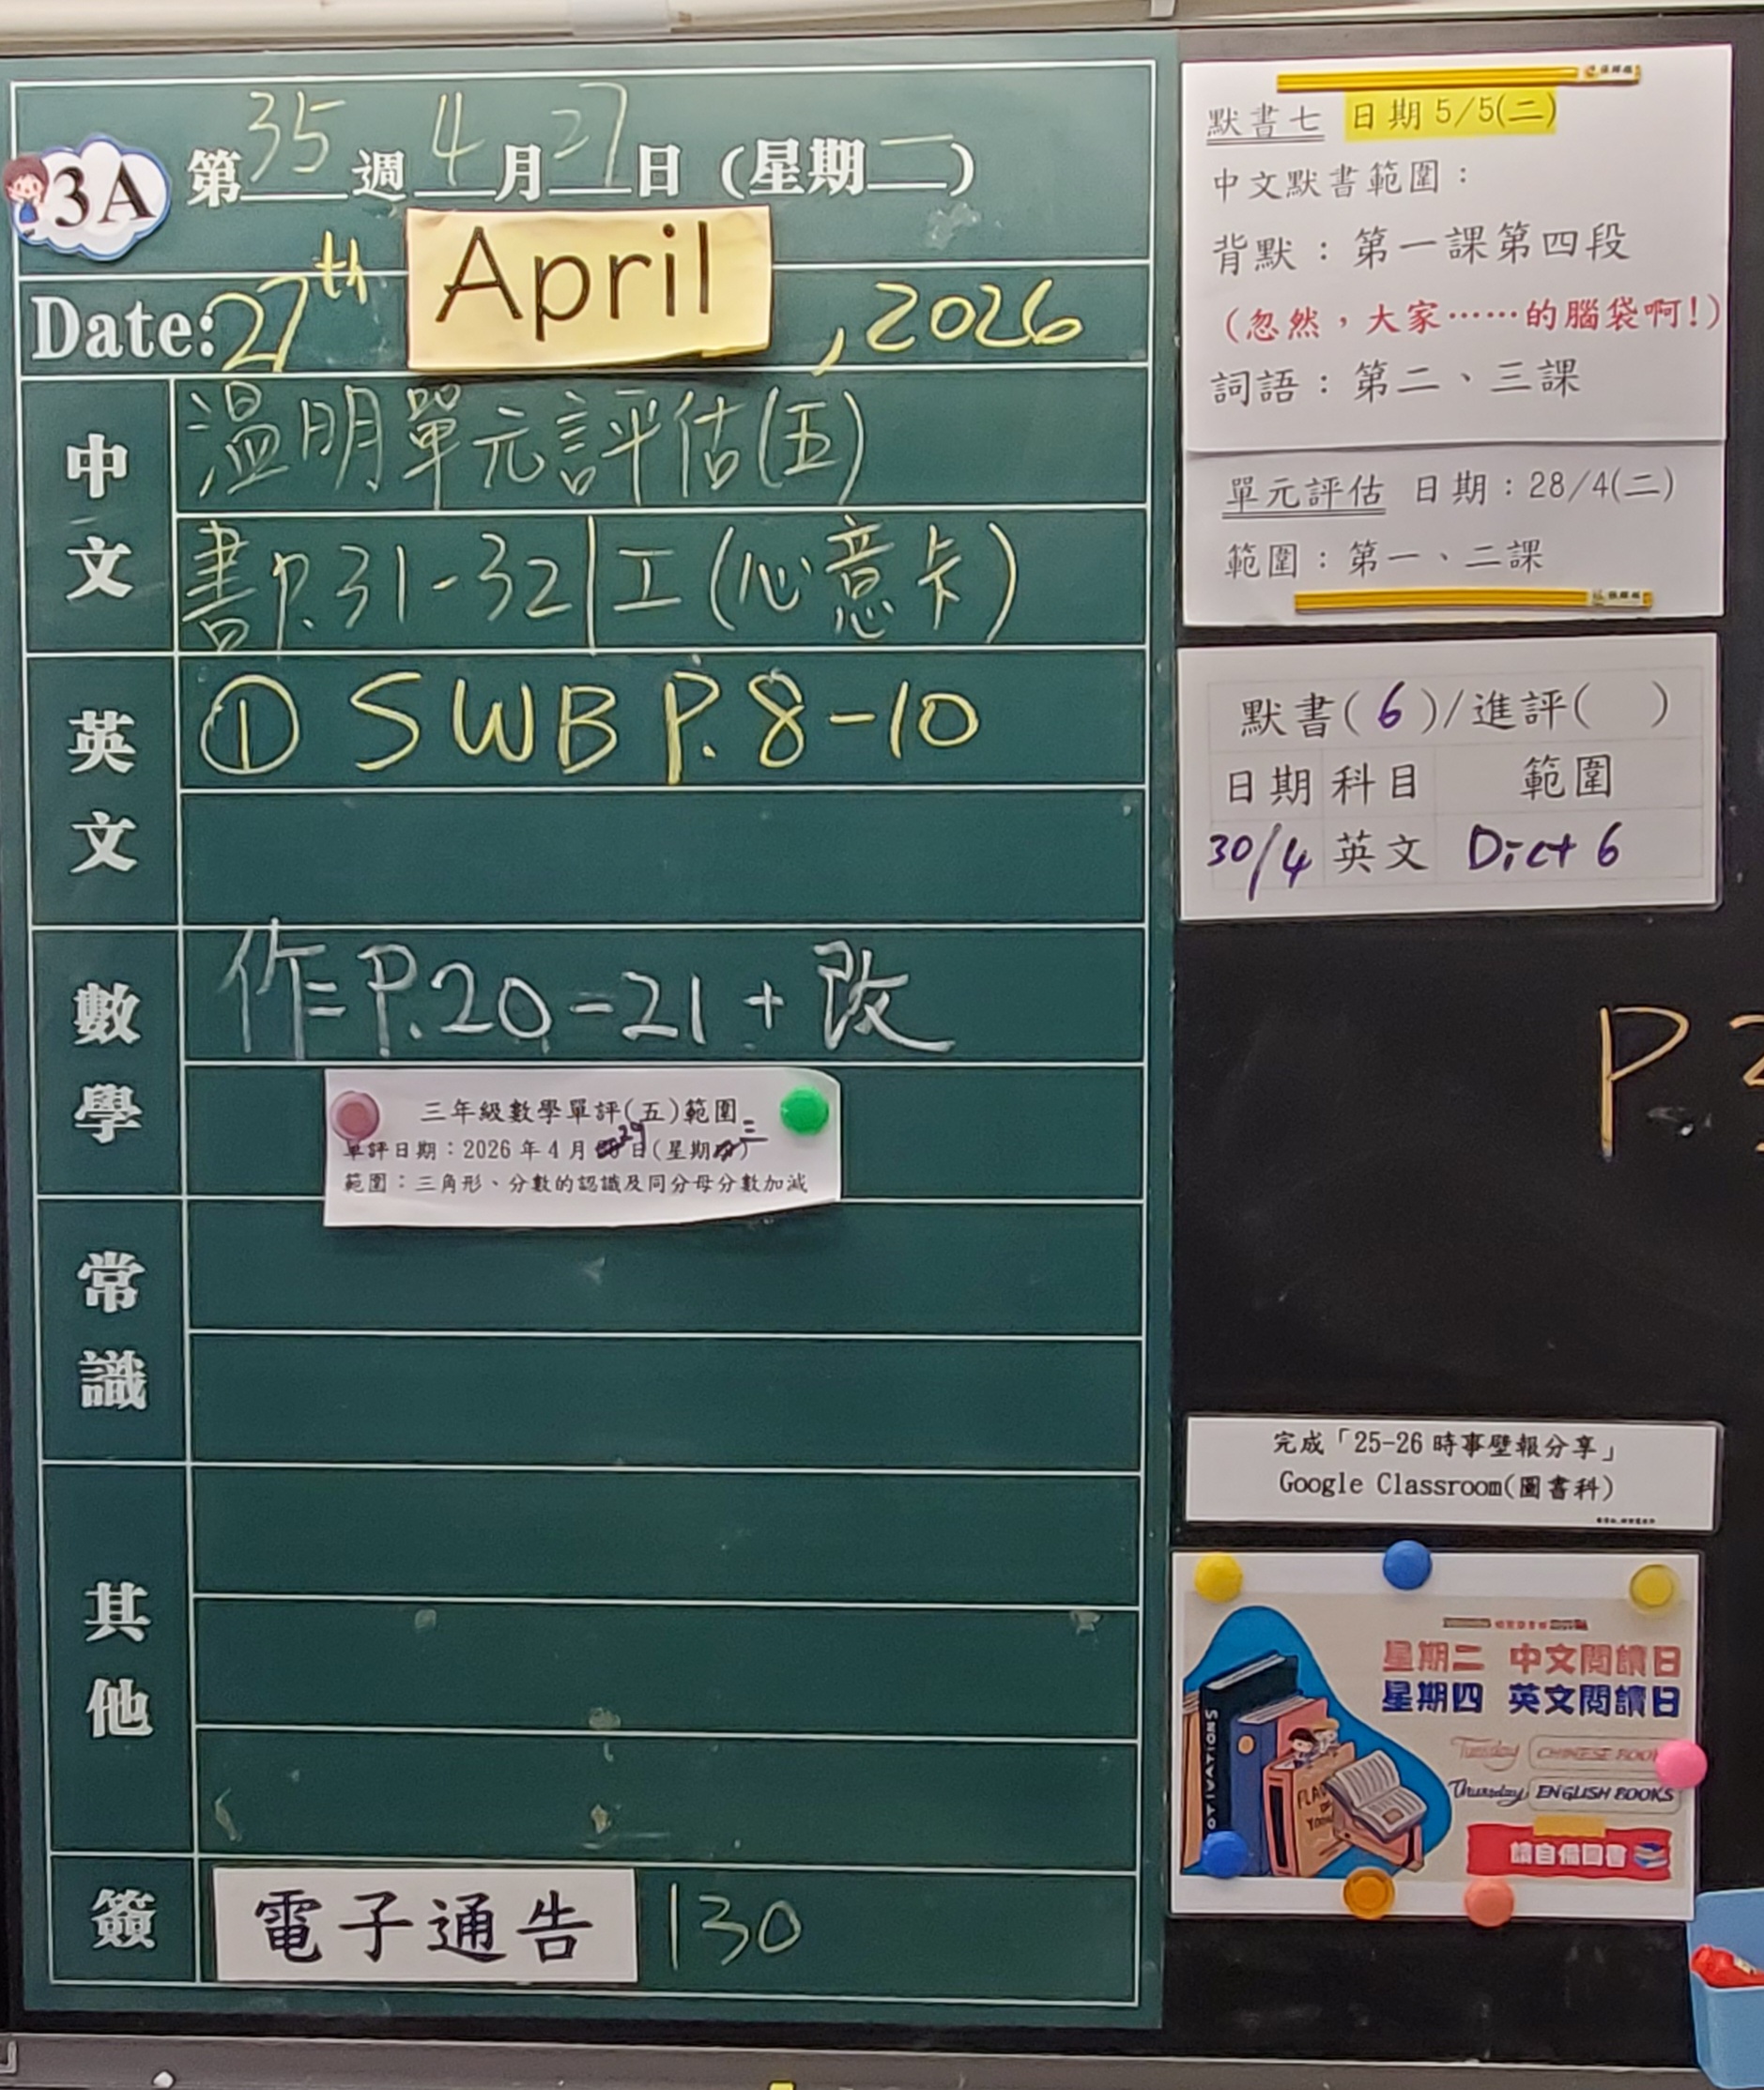 3A
第35週4月27日(星期一)
Date: 27th April, 2026
中文
溫明單元評估(五)
書P.31-32|工(心意卡)
英文
① SWB P.8-10
數學
作=P.20-21+改
三年級數學單評(五)範圍
單評日期：2026年4月29日(星期三)
範圍：三角形、分數的認識及同分母分數加減
常識
其他
簽
電子通告 130
默書七 日期5/5(二)
中文默書範圍：
背默：第一課第四段
(忽然，大家……的腦袋啊!)
詞語：第二、三課
單元評估 日期：28/4(二)
範圍：第一、二課
默書(6)/進評( )
日期 科目 範圍
30/4 英文 Dict 6
P.
完成「25-26時事壁報分享」
Google Classroom(圖書科)
星期二 中文閱讀日
星期四 英文閱讀日
Tuesday CHINESE BOOK
Thursday ENGLISH BOOKS
請自備圖書